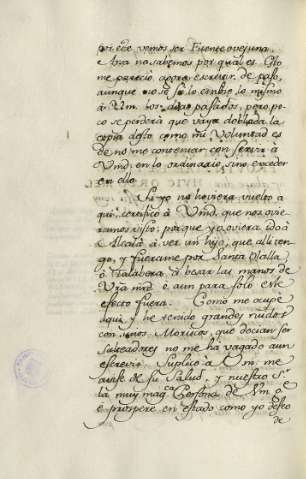 vi ese vemos ser Fuente ovejuna.
e hya no sabemos por qual es. Esto
me pareció agora escriuir de paso,
aunque no sé si lo embie lo mismo
à Vm. los dias passados, pero po
co se perderà que vaya doblada la
copia desto como mi Voluntad es
de no me contentar con servir à
Vmd. en lo ordinario, sino exceder
en ello.
Si yo no hoviera vuelto a
qui, certifico à Vmd. que nos ovie
ramos visto; porque yo oviera ido à
Alcalà à ver un hijo, que alli ten
go, y fuerame por Santa Olalla
ò Talabera à besar las manos de
Vra md. è aun para solo este
efecto fuera. Como me ocupè
aqui, y he tenido grandes ruidos
con unos Moriscos, que decian ser
Salteadores no me hà vagado aun
escrevir. Suplico à Vm. me
avise de su Salud, y nuestro Sr.
la muy magca. Persona de Vm. è
prospere en estado como yo deseo
de